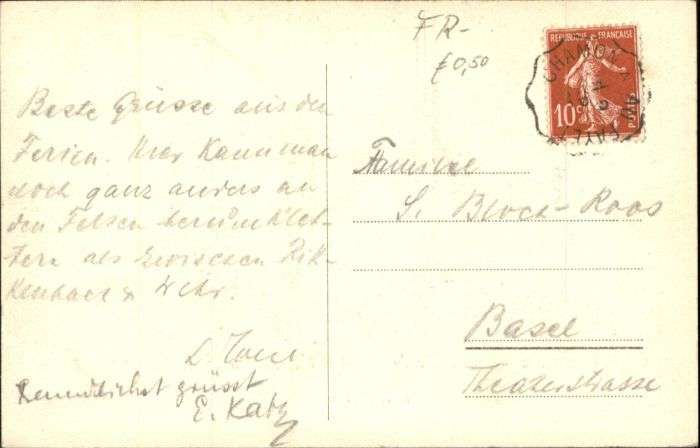 FR-
£0,50
REPUBLIQUE FRANÇAISE
10c
POSTES
CHAMONIX AU FAYET
Beste Grüsse aus den
Ferien. Hier kann man
doch ganz anders an
den Felsen herumklet-
tern als zwischen Rik-
kenbach & Wehr.
Freundlichst grüsst
E. Katz
Familie
S. Bloch-Roos
Basel
Theaterstrasse